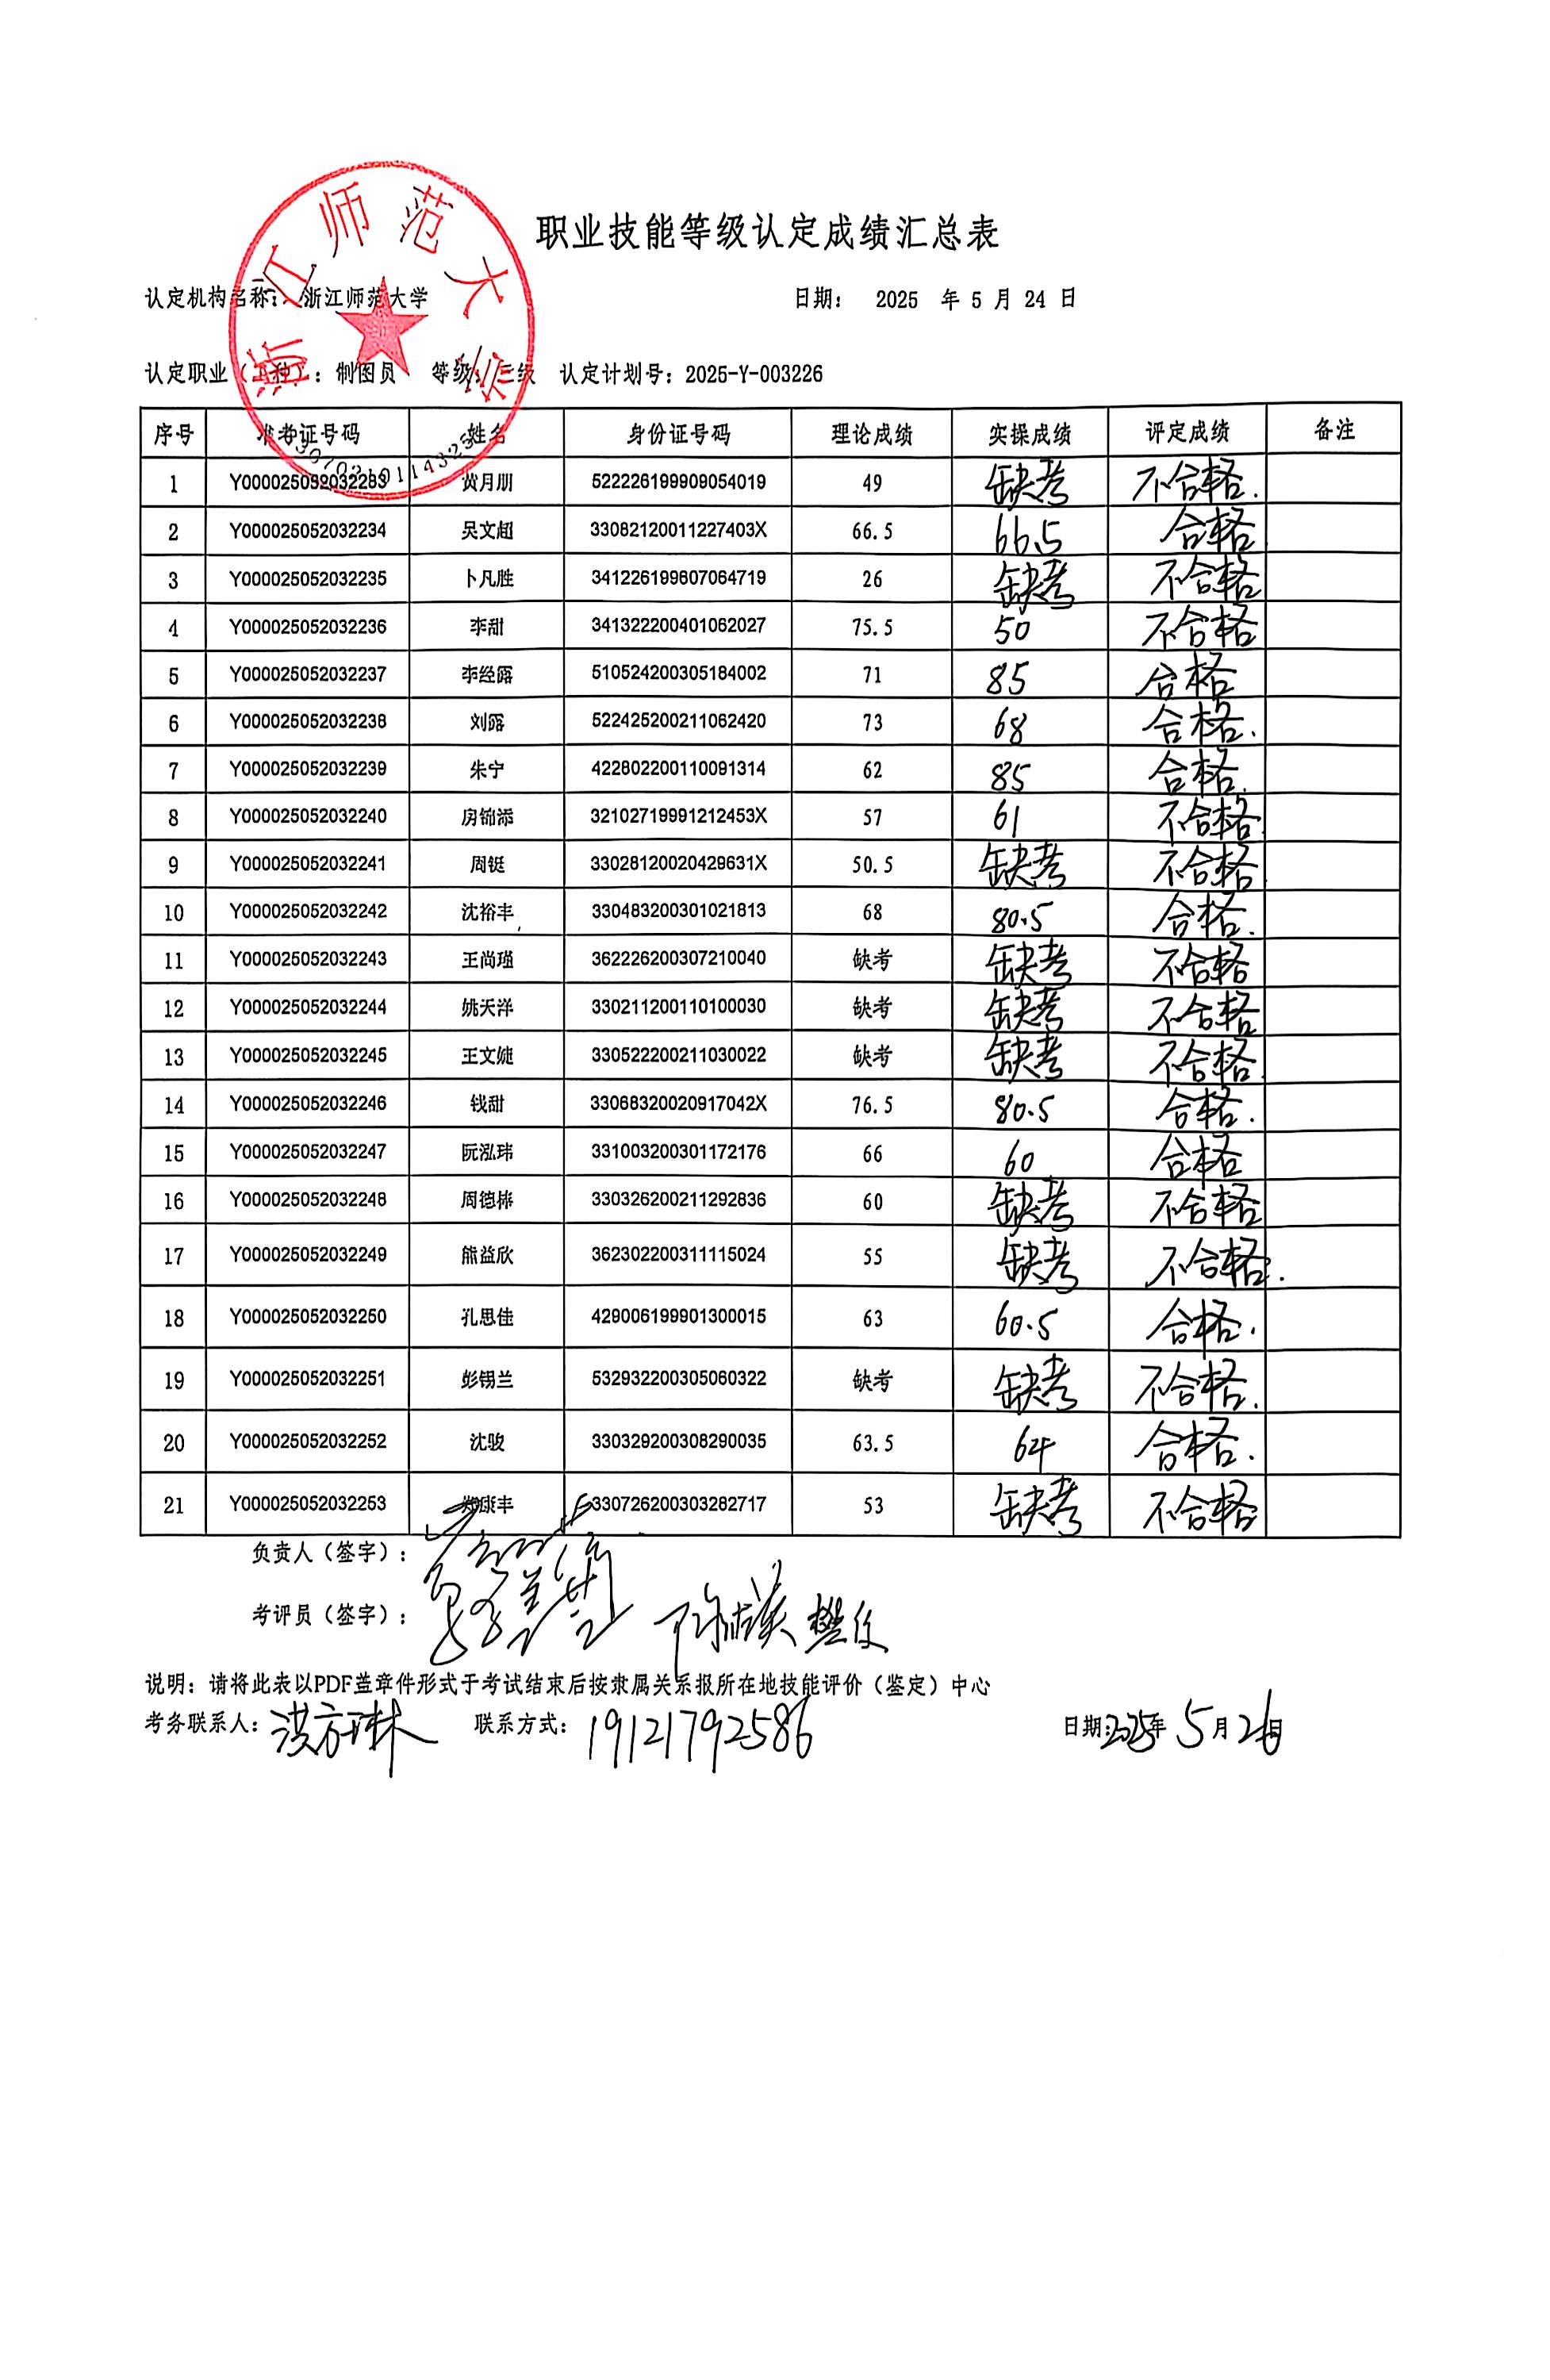 职业技能等级认定成绩汇总表
认定机构名称: 浙江师范大学 日期: 2025 年 5 月 24 日
认定职业（工种）: 制图员 等级: 三级 认定计划号: 2025-Y-003226
浙江师范大学
序号 准考证号码 姓名 身份证号码 理论成绩 实操成绩 评定成绩 备注
1 Y000025052032233 黄月朋 522226199909054019 49 缺考 不合格.
2 Y000025052032234 吴文超 33082120011227403X 66.5 66.5 合格
3 Y000025052032235 卜凡胜 341226199607064719 26 缺考 不合格
4 Y000025052032236 李甜 341322200401062027 75.5 50 不合格
5 Y000025052032237 李经露 510524200305184002 71 85 合格
6 Y000025052032238 刘露 522425200211062420 73 68 合格.
7 Y000025052032239 朱宁 422802200110091314 62 85 合格.
8 Y000025052032240 房锦添 32102719991212453X 57 61 不合格.
9 Y000025052032241 周铤 33028120020429631X 50.5 缺考 不合格
10 Y000025052032242 沈裕丰 330483200301021813 68 80.5 合格.
11 Y000025052032243 王尚瑾 362226200307210040 缺考 缺考 不合格
12 Y000025052032244 姚天洋 330211200110100030 缺考 缺考 不合格
13 Y000025052032245 王文婕 330522200211030022 缺考 缺考 不合格.
14 Y000025052032246 钱甜 33068320020917042X 76.5 80.5 合格.
15 Y000025052032247 阮泓玮 331003200301172176 66 60 合格
16 Y000025052032248 周德 330326200211292836 60 缺考 不合格
17 Y000025052032249 熊益欣 362302200311115024 55 缺考 不合格.
18 Y000025052032250 孔思佳 429006199901300015 63 60.5 合格.
19 Y000025052032251 彭锡兰 532932200305060322 缺考 缺考 不合格.
20 Y000025052032252 沈骏 330329200308290035 63.5 64 合格.
21 Y000025052032253 郑康丰 330726200303282717 53 缺考 不合格
负责人（签字）:
考评员（签字）: 樊
说明: 请将此表以PDF盖章件形式于考试结束后按隶属关系报所在地技能评价（鉴定）中心
考务联系人: 洪方琳 联系方式: 19121792586 日期: 2025年 5 月 26日